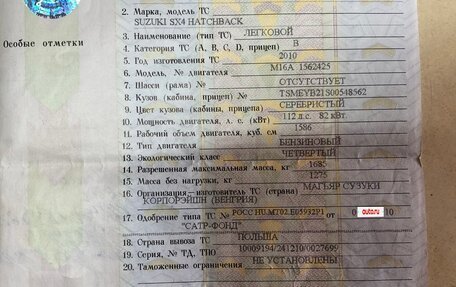 2. Марка, модель ТС
SUZUKI SX4 HATCHBACK
3. Наименование (тип ТС) ЛЕГКОВОЙ
Особые отметки
4. Категория ТС (А, В, С, D, прицеп) В
5. Год изготовления ТС 2010
6. Модель, № двигателя M16A 1562425
7. Шасси (рама) № ОТСУТСТВУЕТ
8. Кузов (кабина, прицеп) № TSMEYB21S00548562
9. Цвет кузова (кабины, прицепа) СЕРЕБРИСТЫЙ
10. Мощность двигателя, л. с. (кВт) 112 л.с. 82 кВт.
11. Рабочий объем двигателя, куб. см 1586
12. Тип двигателя БЕНЗИНОВЫЙ
13. Экологический класс ЧЕТВЕРТЫЙ
14. Разрешенная максимальная масса, кг 1685
15. Масса без нагрузки, кг 1275
16. Организация-изготовитель ТС (страна) МАГЬЯР СУЗУКИ
КОРПОРЭЙШН (ВЕНГРИЯ)
17. Одобрение типа ТС № РОСС HU.MT02.E05932P1 от 0 auto.ru 10
"САТР-ФОНД"
18. Страна вывоза ТС ПОЛЬША
19. Серия, № ТД, ТПО 10009194/241210/0027699
20. Таможенные ограничения НЕ УСТАНОВЛЕНЫ